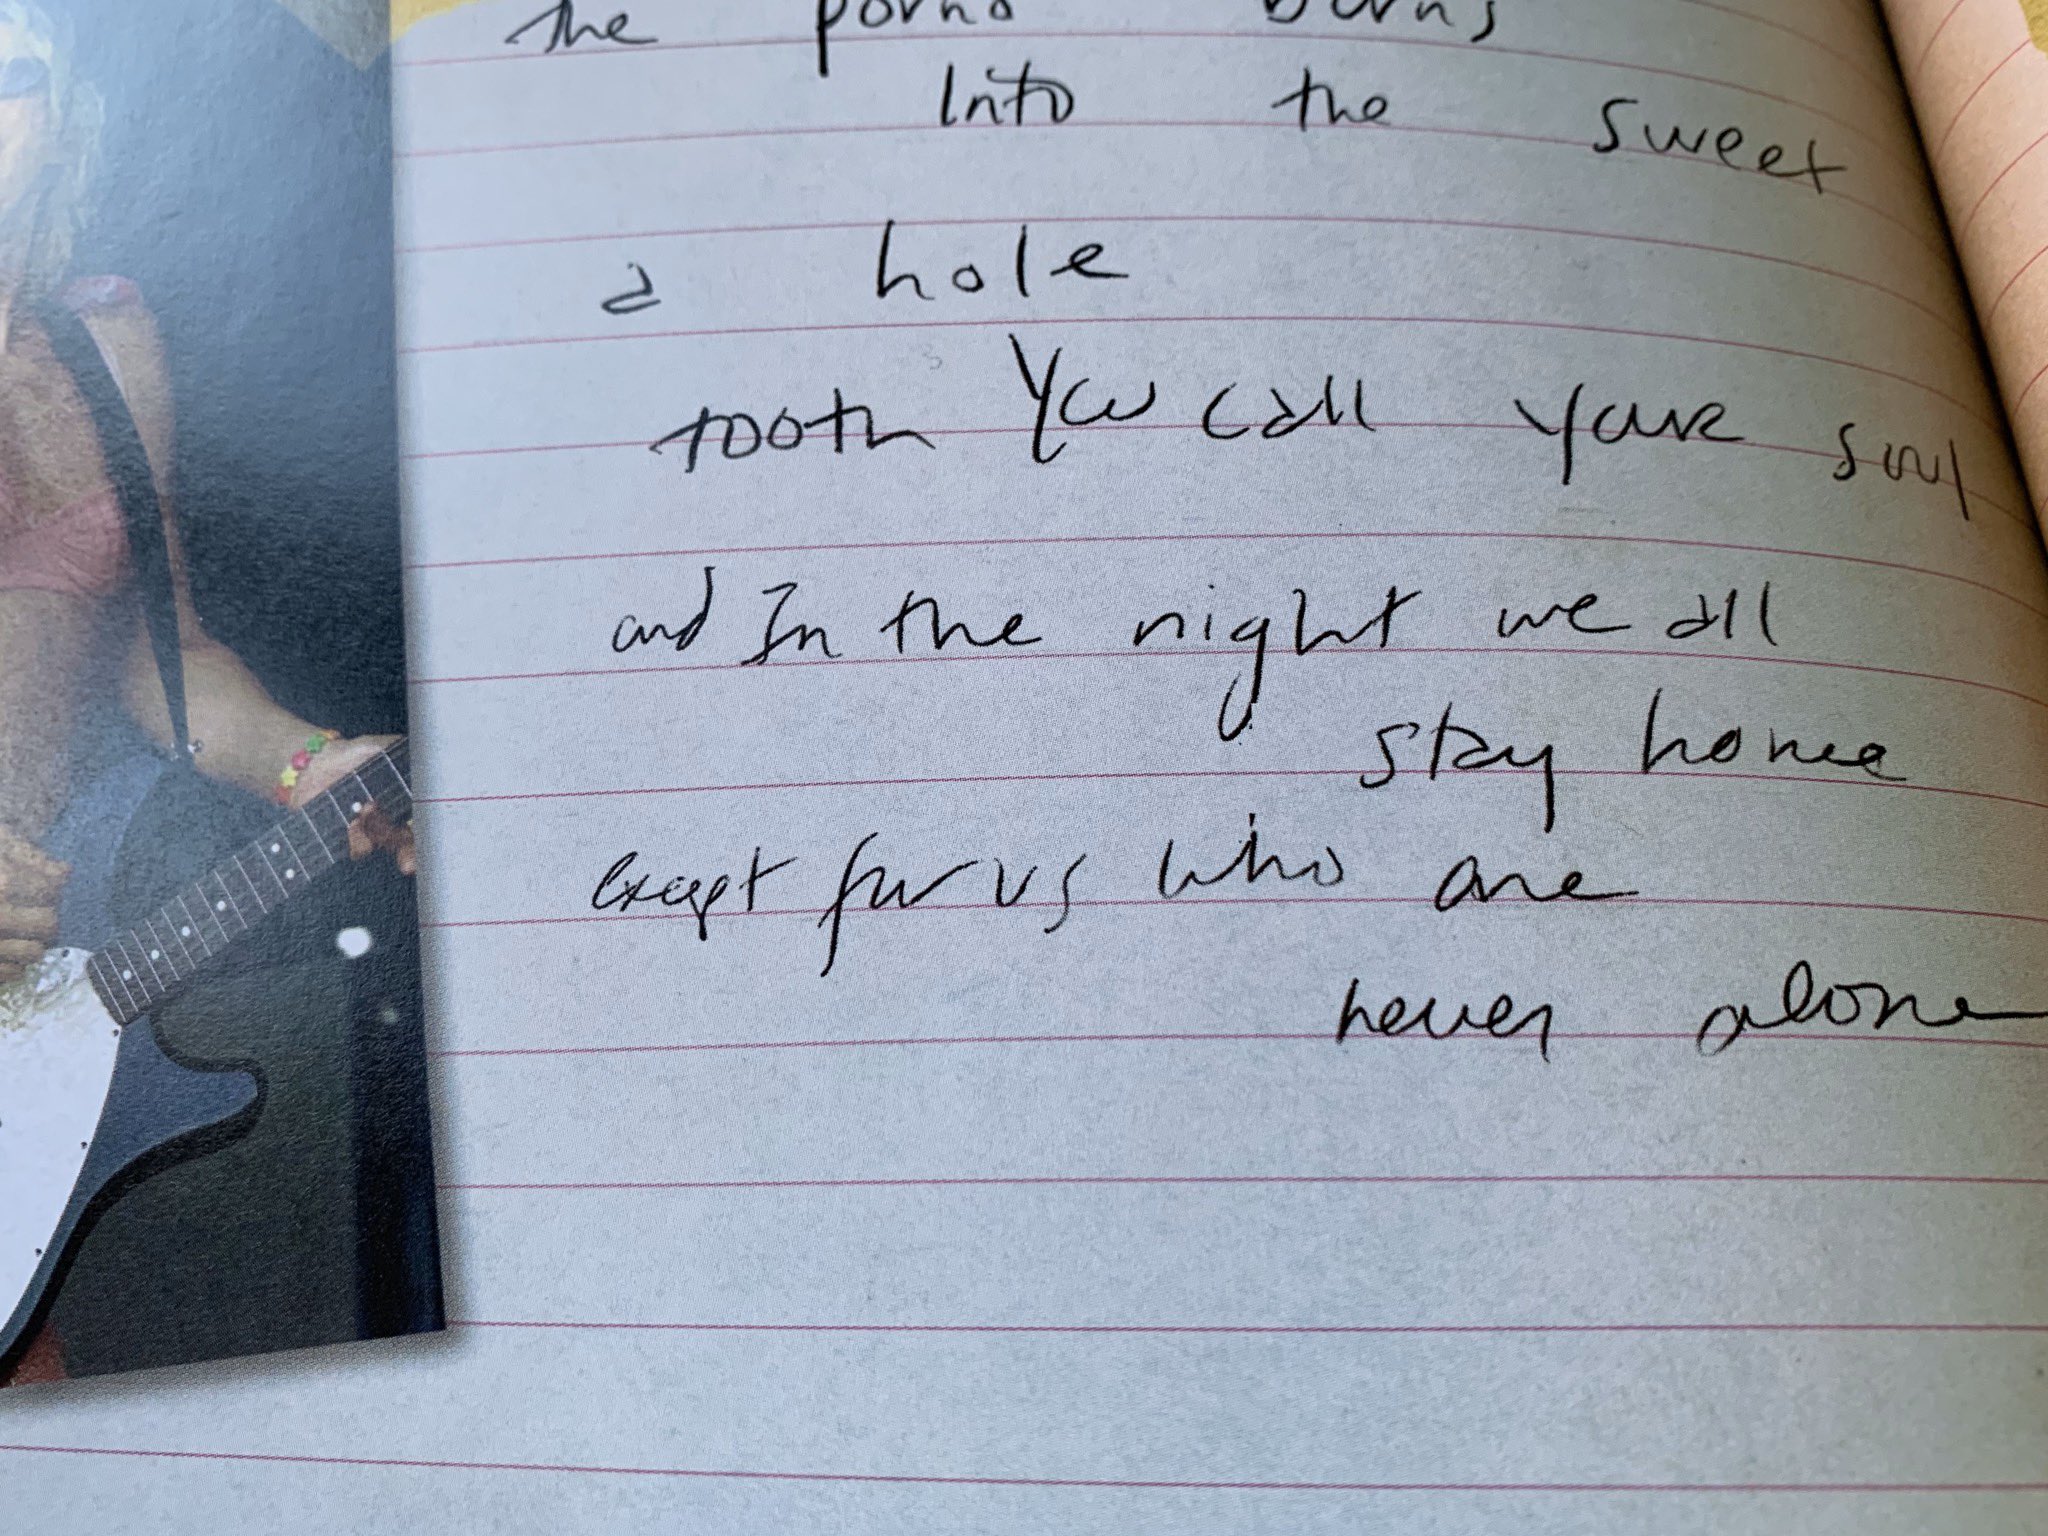 the porno burns
Into the sweet
a hole
tooth You call your soul
and In the night we all
stay home
except for us who are
never alone